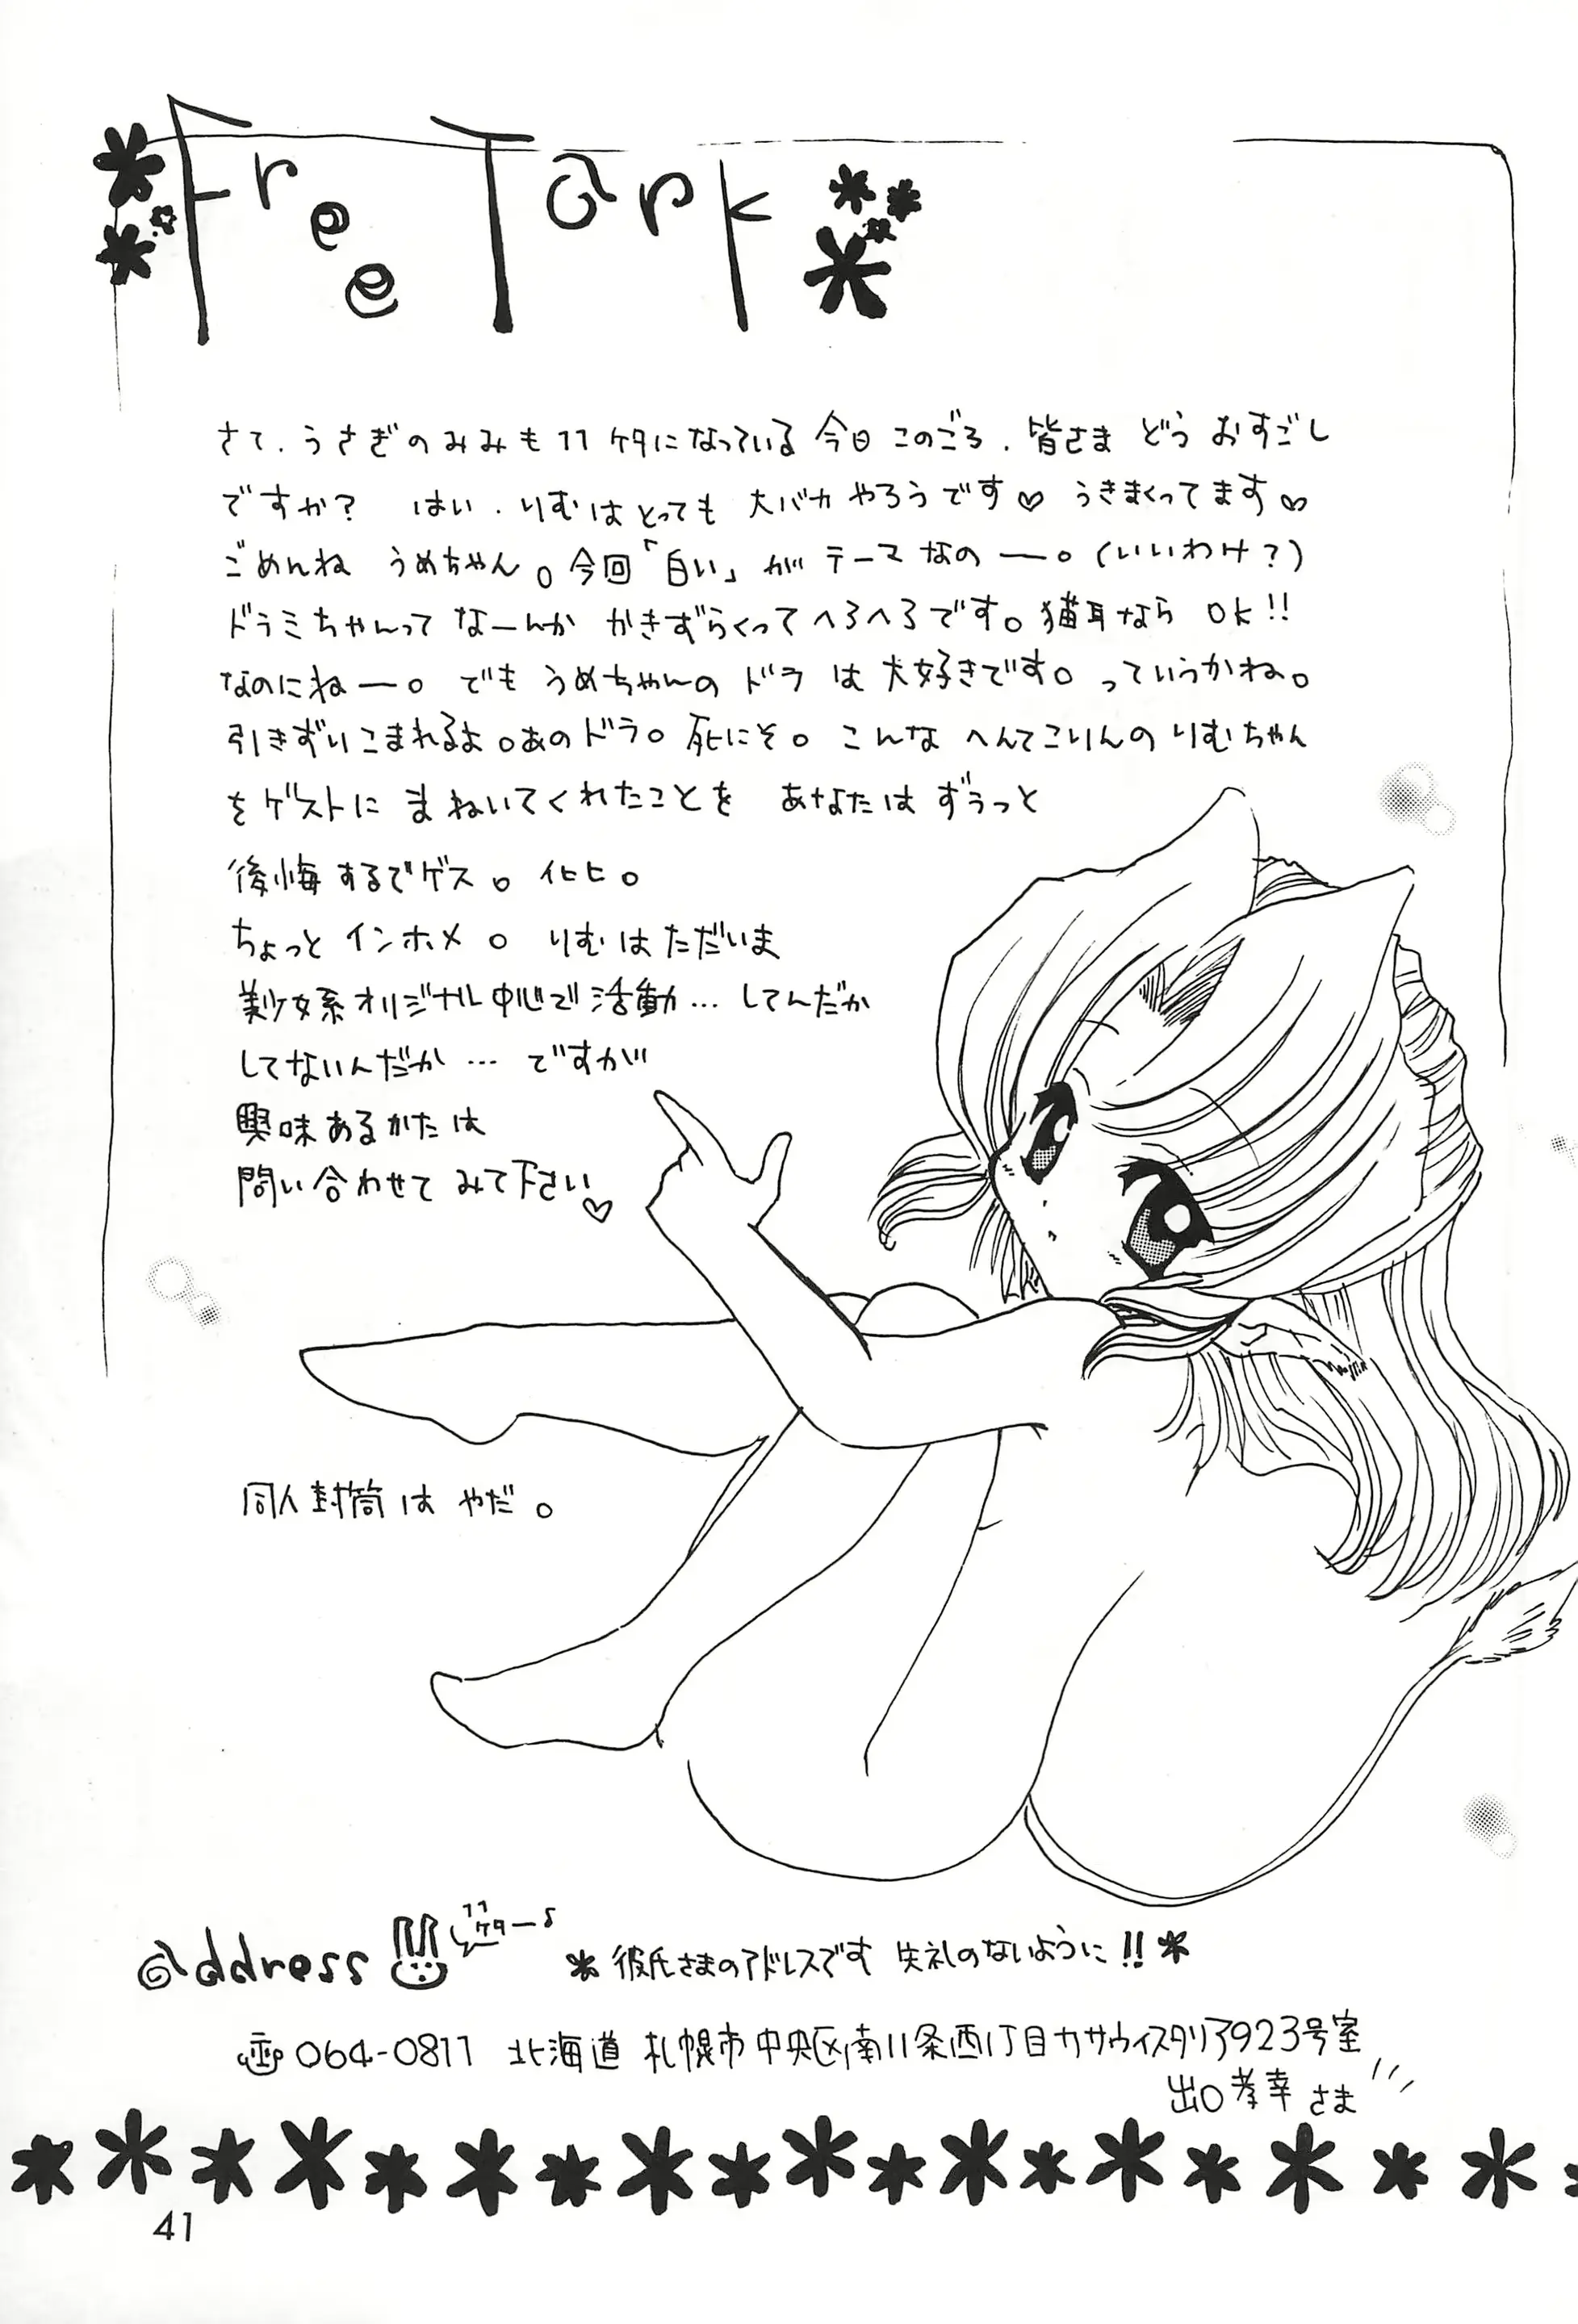 Free Tark
さて、うさぎのみみも11ケタになっている今日このごろ、皆さまどうおすごし
ですか? はい、りむはとっても大バカやろうです♡ うきまくってます♡
ごめんね うめちゃん。今回「白い」がテーマなのー。(いいわけ?)
ドラミちゃんってなーんか かきずらくってへろへろです。猫耳ならOK!!
なのにねー。でもうめちゃんのドラは大好きです。っていうかね。
引きずりこまれるよ。あのドラ。死にそ。こんなへんてこりんのりむちゃん
をゲストにまねいてくれたことを あなたはずぅっと
後悔するでゲス。イヒヒ。
ちょっとインホメ。りむはただいま
美少女系オリジナル中心で活動…してんだか
してないんだか…ですが
興味あるかたは
問い合わせてみて下さい♡
同人封筒はやだ。
address
11ケター♪
*彼氏さまのアドレスです 失礼のないように!!*
〒064-0811 北海道札幌市中央区南11条西1丁目カサウィスタリア923号室
出口孝幸さま
41